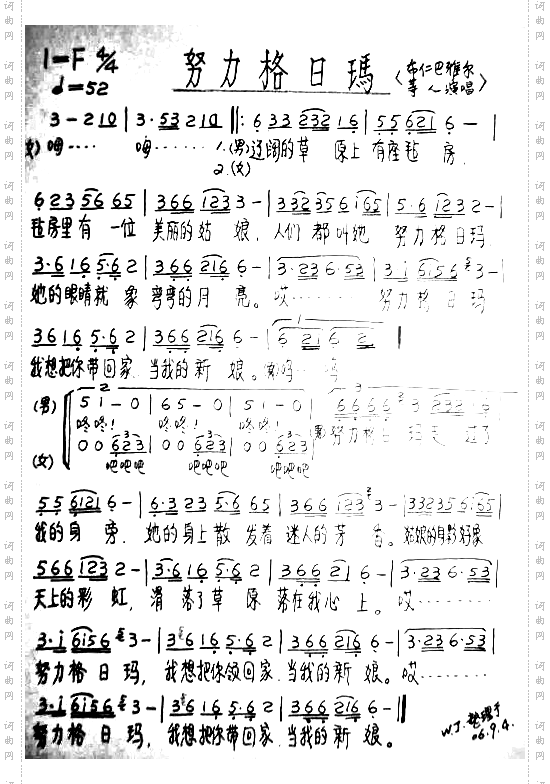 1=F 4/4
♩=52
努力格日瑪
〈布仁巴雅尔等演唱〉
3-210|3·53210‖:633232 16|55621 6-|
女)嗨····· 嗨····· 1.(男)辽阔的草 原上 有座毡 房.
2.(女)
623 235 665|366 123 3-|332356165|5·6 123 2-|
毡房里有 一位 美丽的姑 娘, 人们 都叫她 努力格日玛.
3·616 5·62|366 216 6-|3·23 6·53|3 i 6156 3-|
她的眼睛就 象 弯弯的月 亮。哎········ 努力格 日 玛
3616 5·62|366 216 6-|6 21 6 2‖
我想把你带回家 当我的新 娘。
(男) 51-0|65-0|51-0|
咚咚! 咚咚! 咚咚! 努力格日 玛走 过了
(女) 00623|00623|00623|
吧吧吧 吧吧吧 吧吧吧
55 6121 6-|6·323 5665|366 123 3-|332356165|
我的身 旁, 她的身上散 发着 迷人的芳 香。姑娘的身影好象
566 123 2-|3·616 5·62|366 21 6-|3·23 6·53|
天上的彩 虹, 滑 落了草 原 落在我心 上。哎········
3·i 6156 3-|3616 5·62|366 216 6-|3·23 6·53|
努力格 日 玛, 我想把你领回家 当我的新 娘。哎········
3·i 6156 3-|3616 5·62|366 216 6-‖
努力格 日 玛, 我想把你带回家 当我的新 娘。
W.J.
06.9.4.
词曲网